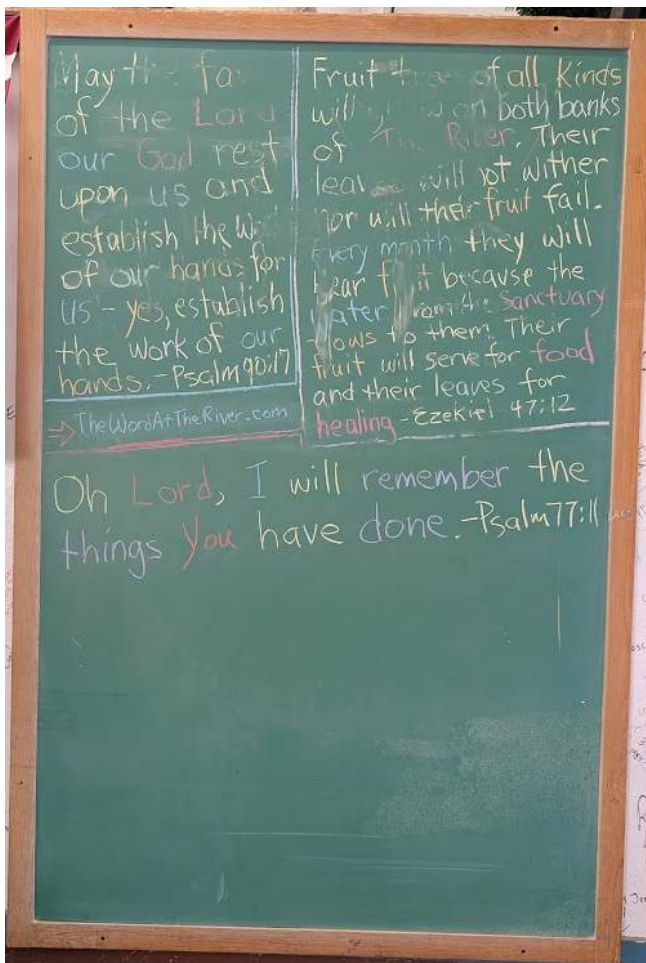 May the fa
of the Lord
our God rest
upon us and
establish the Wo
of our hands for
us - yes, establish
the work of our
hands. - Psalm 90:17
⇒ TheWordAtTheRiver.com
Fruit trees of all kinds
will on both banks
of The River. Their
leaves will not wither
nor will their fruit fail.
Every month they will
bear fruit because the
water from the Sanctuary
flows to them. Their
fruit will serve for food
and their leaves for
healing - Ezekiel 47:12
Oh Lord, I will remember the
things You have done. - Psalm 77:11